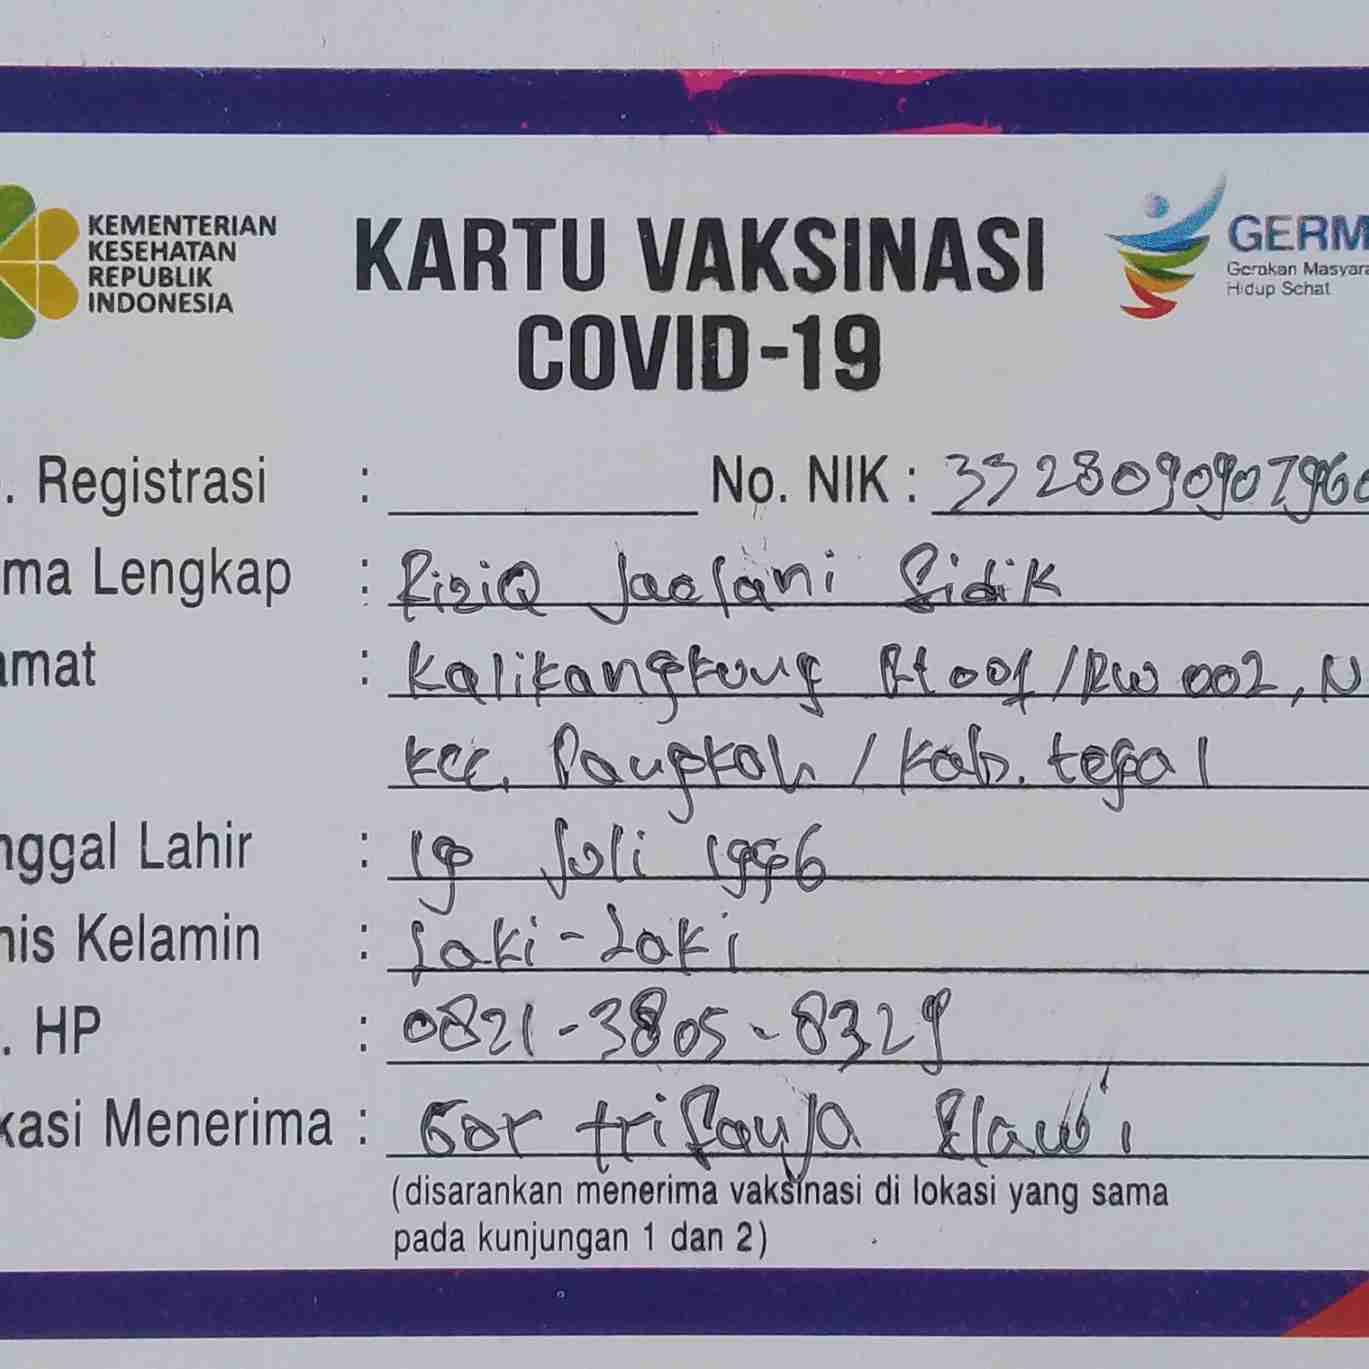 KEMENTERIAN
KESEHATAN
REPUBLIK
INDONESIA
KARTU VAKSINASI
COVID-19
GERM
Gerakan Masyara
Hidup Sehat
. Registrasi : No. NIK : 3328090907960
ma Lengkap : RiziQ Jaelani Sidik
amat : Kalikangkung Rt 001 / RW 002, N
kec. Pangkah / Kab. tegal
nggal Lahir : 19 Juli 1996
nis Kelamin : Laki-Laki
. HP : 0821-3805-8329
kasi Menerima : Gor tri Sanja Slawi
(disarankan menerima vaksinasi di lokasi yang sama
pada kunjungan 1 dan 2)